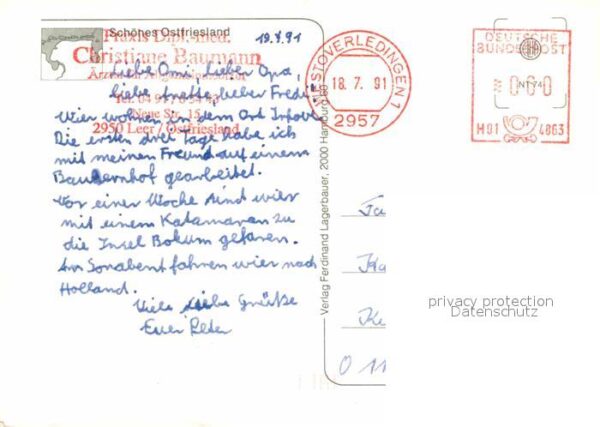 Schönes Ostfriesland
19.7.91
Praxis Dipl.-med.
Christiane Baumann
Neue Str. 15
2950 Leer / Ostfriesland
Liebe Omi, liebe Opa,
liebe liebe
Wier wohnen in dem Ort
Die ersten drei Tage habe ich
mit meinen Freund auf einem
Bauernhof gearbeitet.
Vor einer Woche sind wier
mit einem Katamaran zu
die Insel Bokum gefaren.
Am Sonabent fahren wier nach
Holland.
Viele liebe Grüße
Euer
WESTOVERLEDINGEN 1
18.7.91
2957
DEUTSCHE
BUNDESPOST
000
NT 74
H01 4863
Verlag Ferdinand Lagerbauer, 2000 Hamburg 80
O 11
privacy protection
Datenschutz